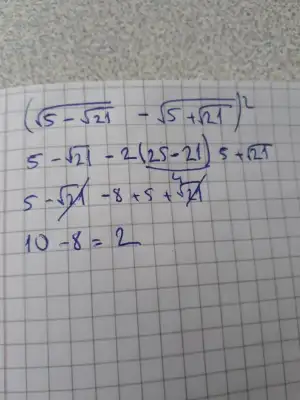 (√(5 - √21) - √(5 + √21))²
5 - √21 - 2(25 - 21) 5 + √21
4
5 - √21 - 8 + 5 + √21
10 - 8 = 2